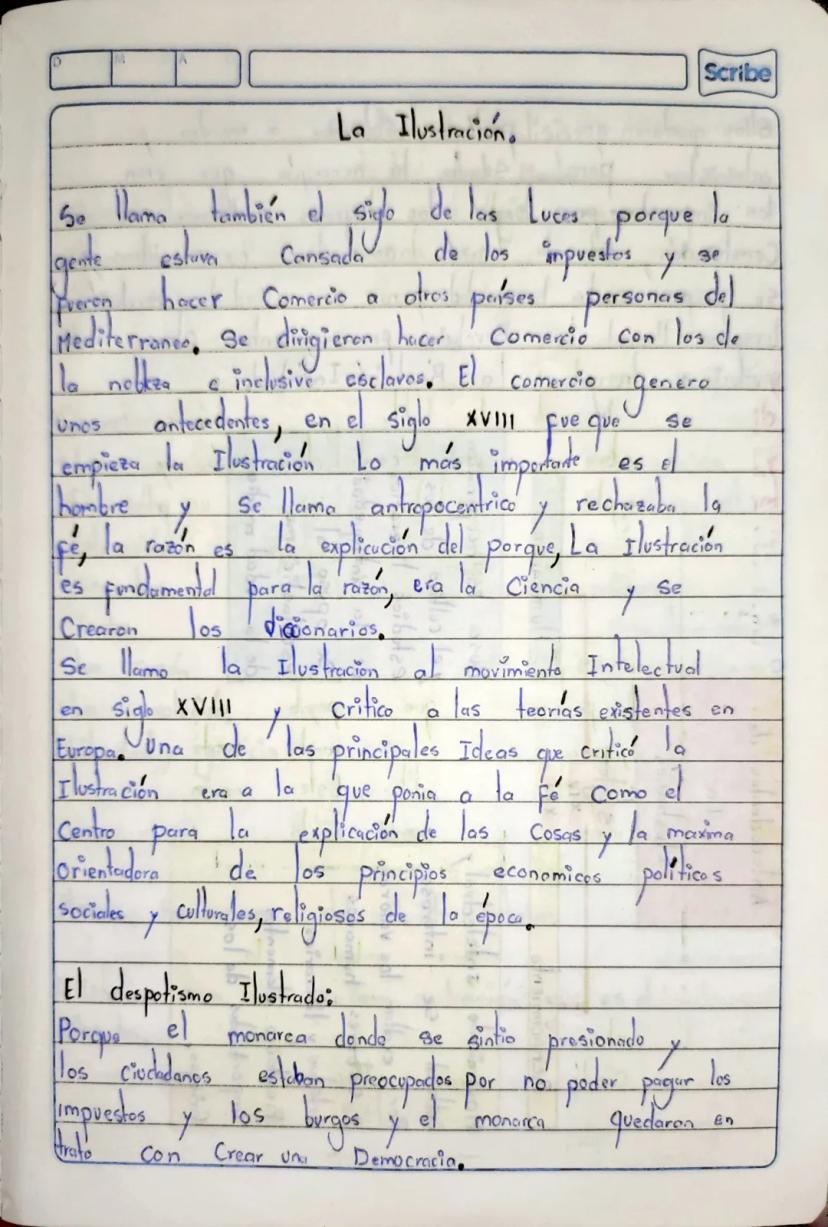 D M A
Scribe
La Ilustración.
Se llama también el siglo de las Luces porque la
gente estuva Cansada de los inpuestos y se
fueron hacer Comercio a otros países personas del
Mediterraneo. Se dirigieron hacer Comercio con los de
la nobleza e inclusive esclavos. El comercio genero
unos antecedentes, en el siglo XVIII fue que se
empieza la Ilustración Lo más importante es el
hombre y se llama antropocentrico y rechazaba la
fé, la razón es la explicución del porque, La Ilustración
es fundamental para la razón, era la Ciencia y se
Crearon los diccionarios.
Se llamo la Ilustración al movimiento Intelectual
en siglo XVIII y critico a las teorías existentes en
Europa. Una de las principales Ideas que criticó la
Ilustración era a la que ponia a la Fé como el
Centro para la explicación de las Cosas y la maxima
Orientadora de los principios economicos políticos
sociales y culturales, religiosos de la época.
El despotismo Ilustrado:
Porque el monarca donde se sintio presionado y
los Ciudadanos estaban preocupados por no poder pagar los
impuestos y los burgos y el monarca quedaron en
trato con Crear una Democracia.